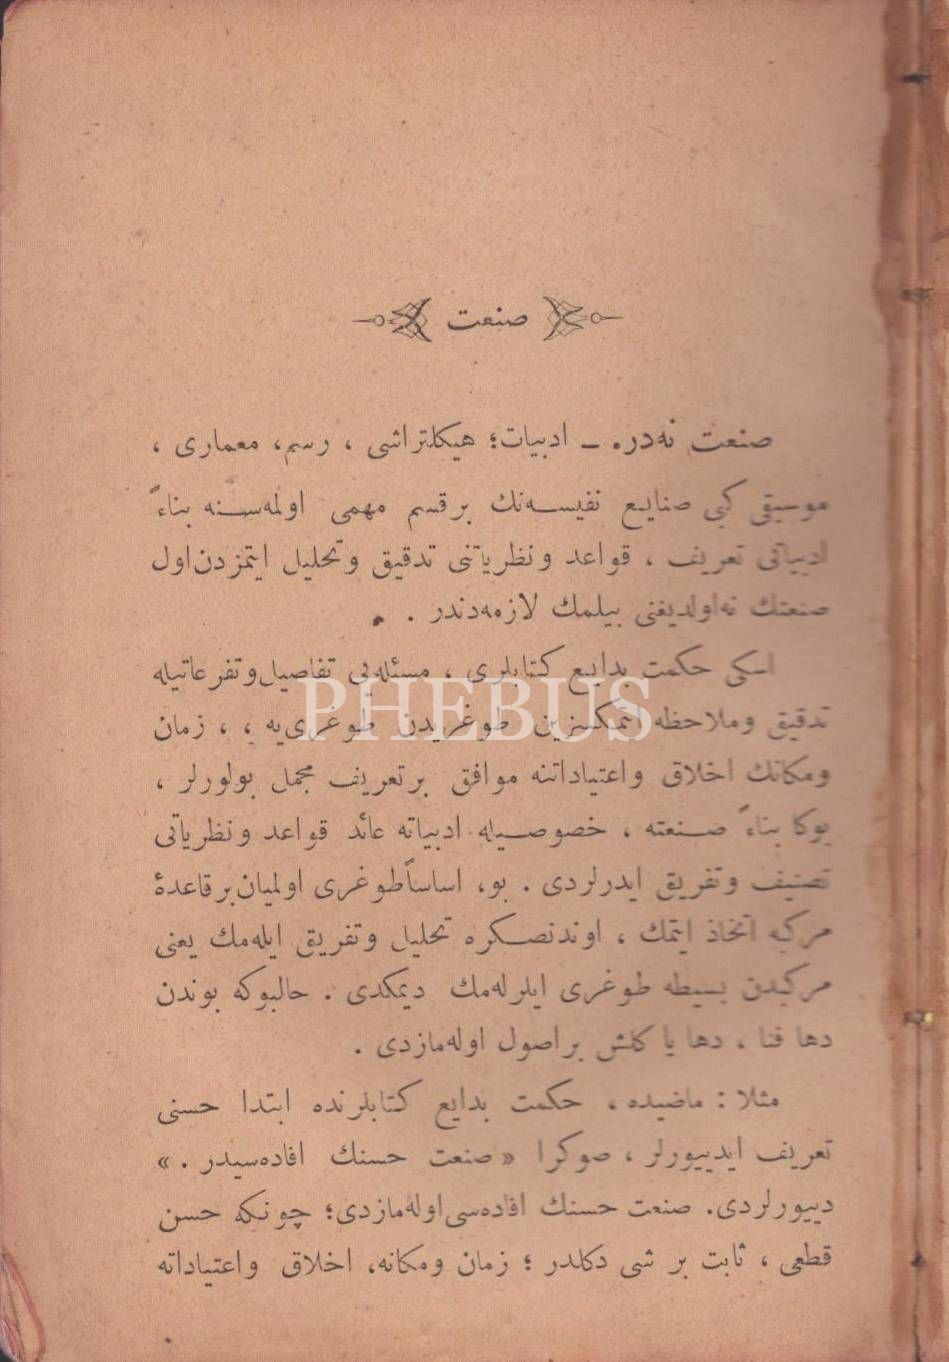 صنعت
صنعت نه‌در. ـ ادبیات؛ هیکلتراشی ، رسم، معماری ،
موسیقی کبی صنایع نفیسه‌نك برقسم مهمی اولمه‌سـنه بناءً
ادبیاتی تعریف ، قواعد ونظریاتنی تدقیق وتحلیل ایتمزدن‌اول
صنعتك نه‌اولدیغنی بیلمك لازمه‌دندر .
اسکی حکمت بدایع کتابلری ، مسئله‌یی تفاصیل‌وتفرعاتیله
تدقیق وملاحظه ایتمکسزین طوغریدن طوغری‌یه ، ، زمان
ومکانك اخلاق واعتیاداتنه موافق برتعریف مجمل بولورلر ،
بوکا بناءً صـنعته ، خصوصـیله ادبیاته عائد قواعد ونظریاتی
تصنیف وتفریق ایدرلردی . بو، اساساًطوغری اولمیان‌برقاعدۀ
مرکبه اتخاذ ایتمك ، اوندنصـکره تحلیل وتفریق ایله‌مك یعنی
مرکبدن بسیطه طوغری ایلرله‌مك دیمکدی . حالبوکه بوندن
دها فنا ، دها یا کلش براصول اوله‌مازدی .
مثلا : ماضیده ، حکمت بدایع کتابلرنده ابتدا حسنی
تعریف ایدییورلر ، صوکرا « صنعت حسنك افاده‌سیدر . »
دییورلردی. صنعت حسنك افاده‌سی‌اوله‌مازدی؛ چونکه حسن
قطعی ، ثابت بر شی دکلدر ؛ زمان ومکانه، اخلاق واعتیاداته
PHEBUS